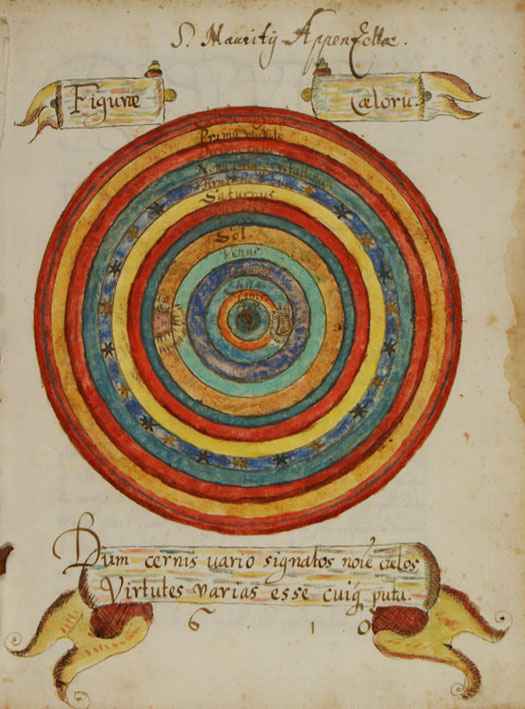 S. Mauritij Appenzellæ.
Figuræ
Cælorũ.
Saturnus
Sol.
Venus.
Dum cernis uario signatos noīe cælos
Virtutes varias esse cuiq putu.
6 1 0